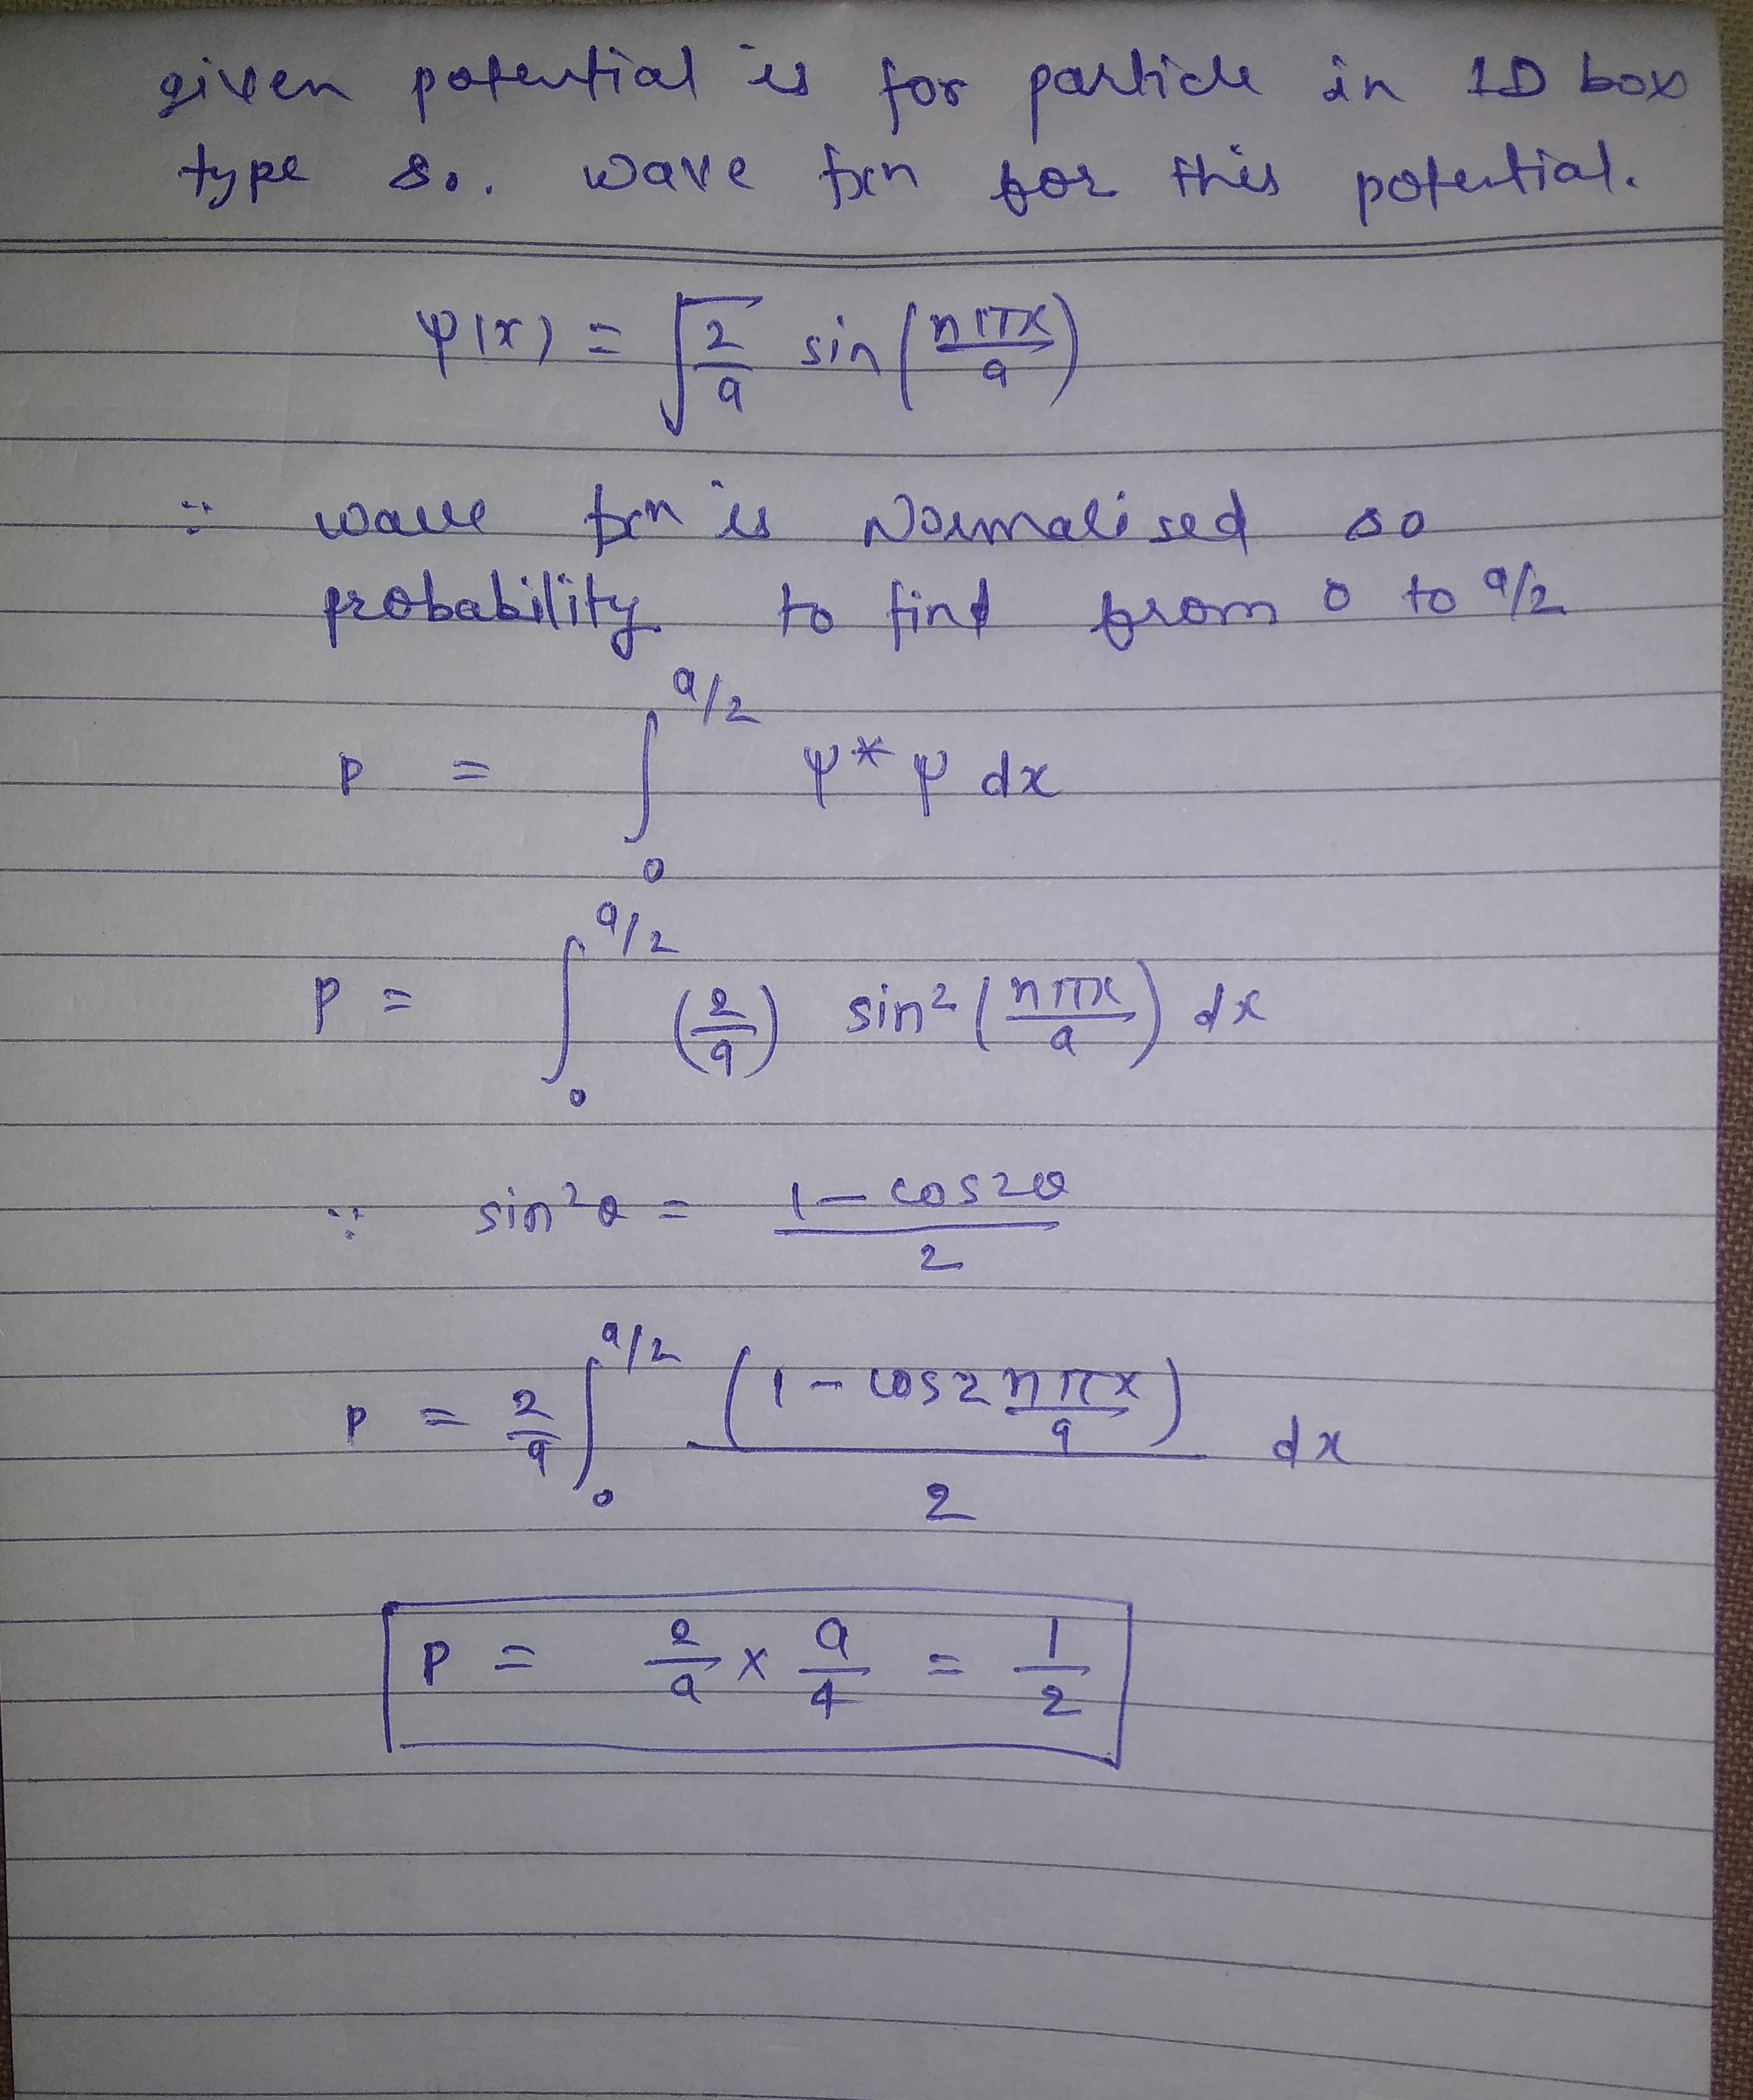 given potential is for particle in 1D box
type so. wave fxn for this potential.
ψ(x) = √(2/a) sin(nπx/a)
∵ wave fxn is Normalised so
probability to find from 0 to a/2
P = ∫₀^(a/2) ψ*ψ dx
P = ∫₀^(a/2) (2/a) sin²(nπx/a) dx
∵ sin²θ = (1-cos2θ)/2
P = 2/a ∫₀^(a/2) (1-cos2nπx/a)/2 dx
P = 2/a × a/4 = 1/2